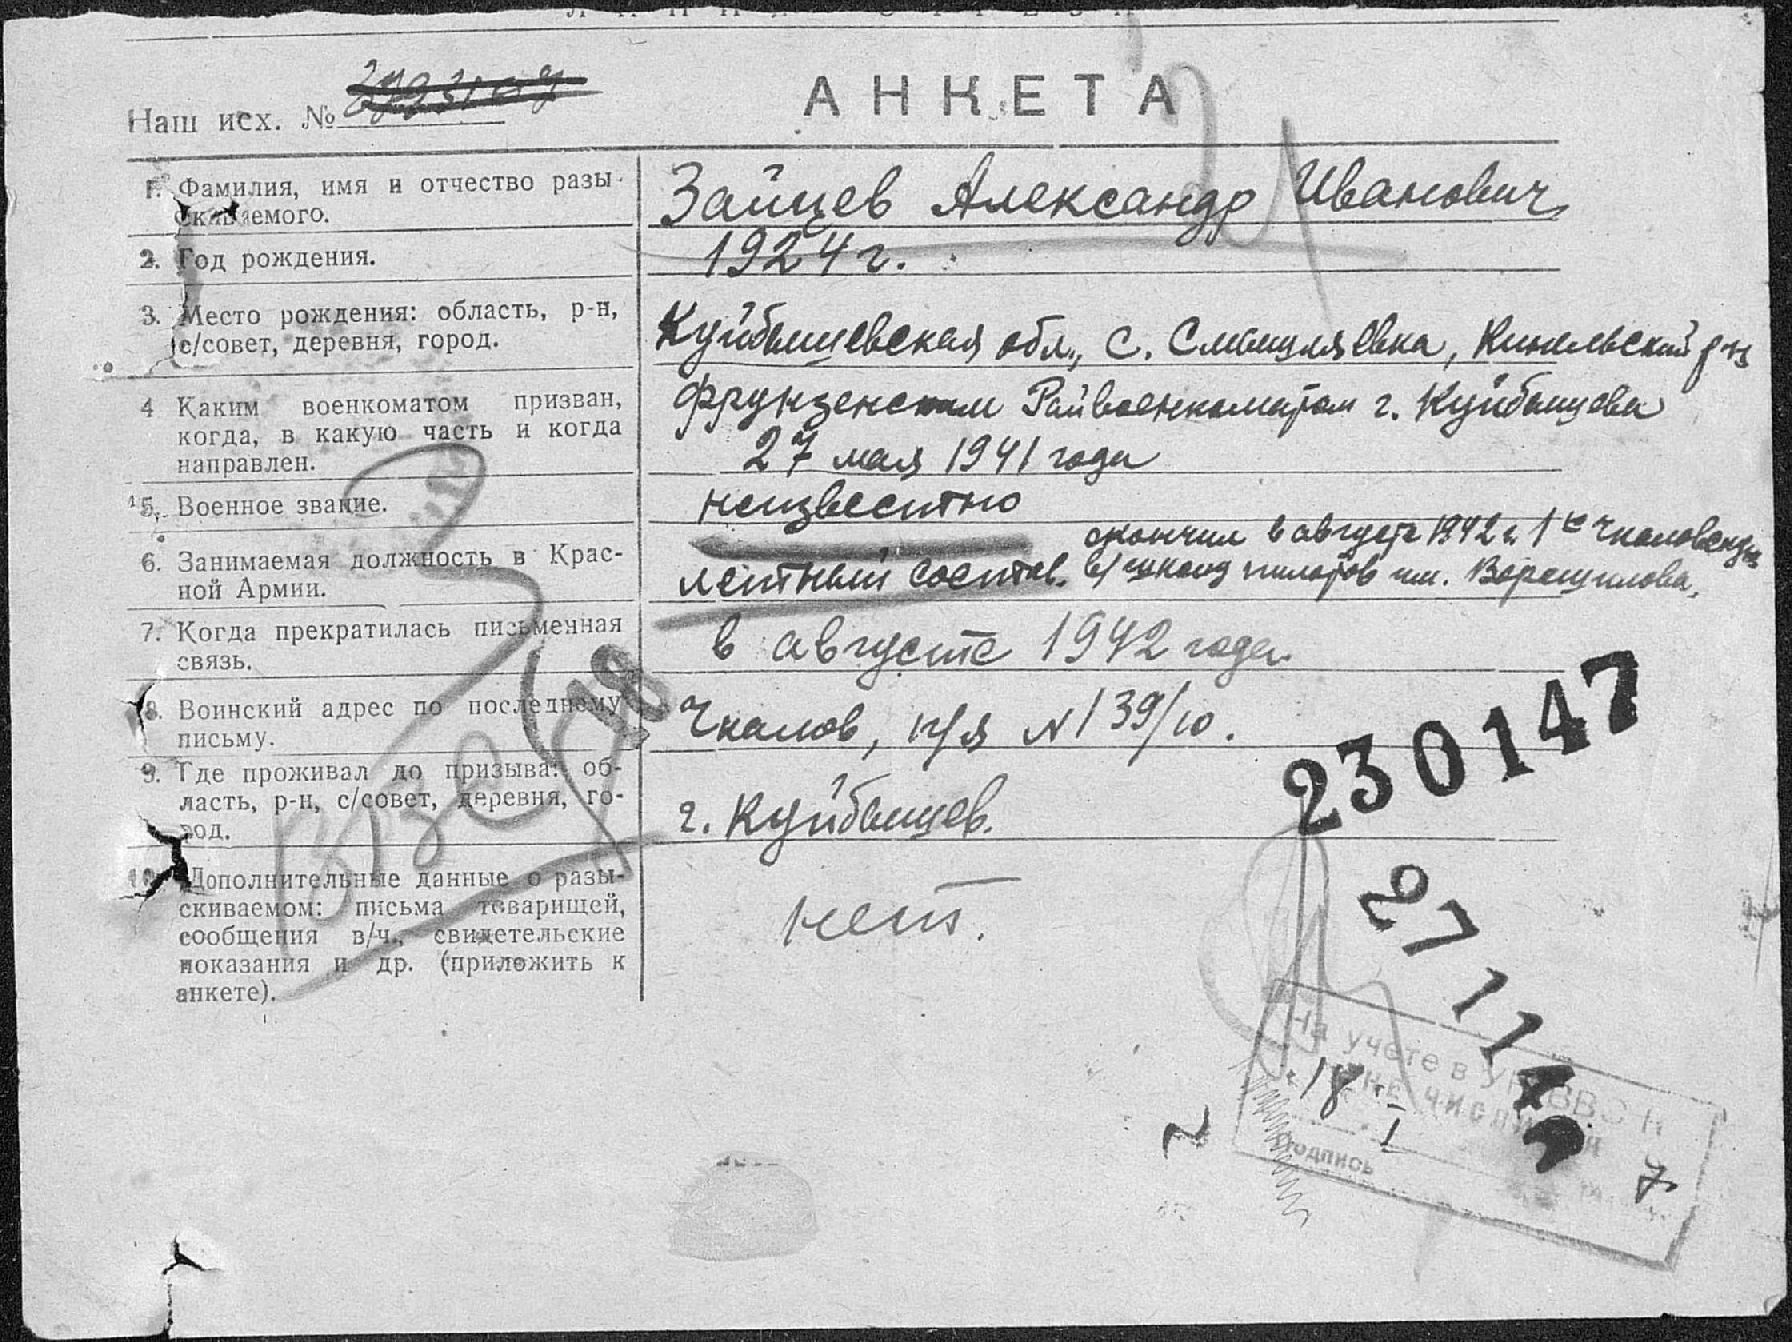 ЛИНИЯ ОТРЕЗА
АНКЕТА
Наш исх. №
1. Фамилия, имя и отчество разы-
скиваемого.
Зайцев Александр Иванович
2. Год рождения.
1924 г.
3. Место рождения: область, р-н,
с/совет, деревня, город.
Куйбышевская обл., с. Смышляевка, Кинельский р-н
4 Каким военкоматом призван,
когда, в какую часть и когда
направлен.
Фрунзенским Райвоенкоматом г. Куйбышева
27 мая 1941 года
5. Военное звание.
неизвестно
6. Занимаемая должность в Крас-
ной Армии.
окончил в августе 1942 г. 1ю Чкаловскую
летный состав. в/школу пилотов им. Ворошилова,
7. Когда прекратилась письменная
связь.
в августе 1942 года.
8. Воинский адрес по последнему
письму.
Чкалов, п/я № 139/10.
9. Где проживал до призыва: об-
ласть, р-н, с/совет, деревня, го-
род.
г. Куйбышев.
10. Дополнительные данные о разы-
скиваемом: письма товарищей,
сообщения в/ч., свидетельские
показания и др. (приложить к
анкете).
нет.
18
230147
27 11
На учете в
НЕ ЧИСЛИТСЯ
"18" I 7
Подпись